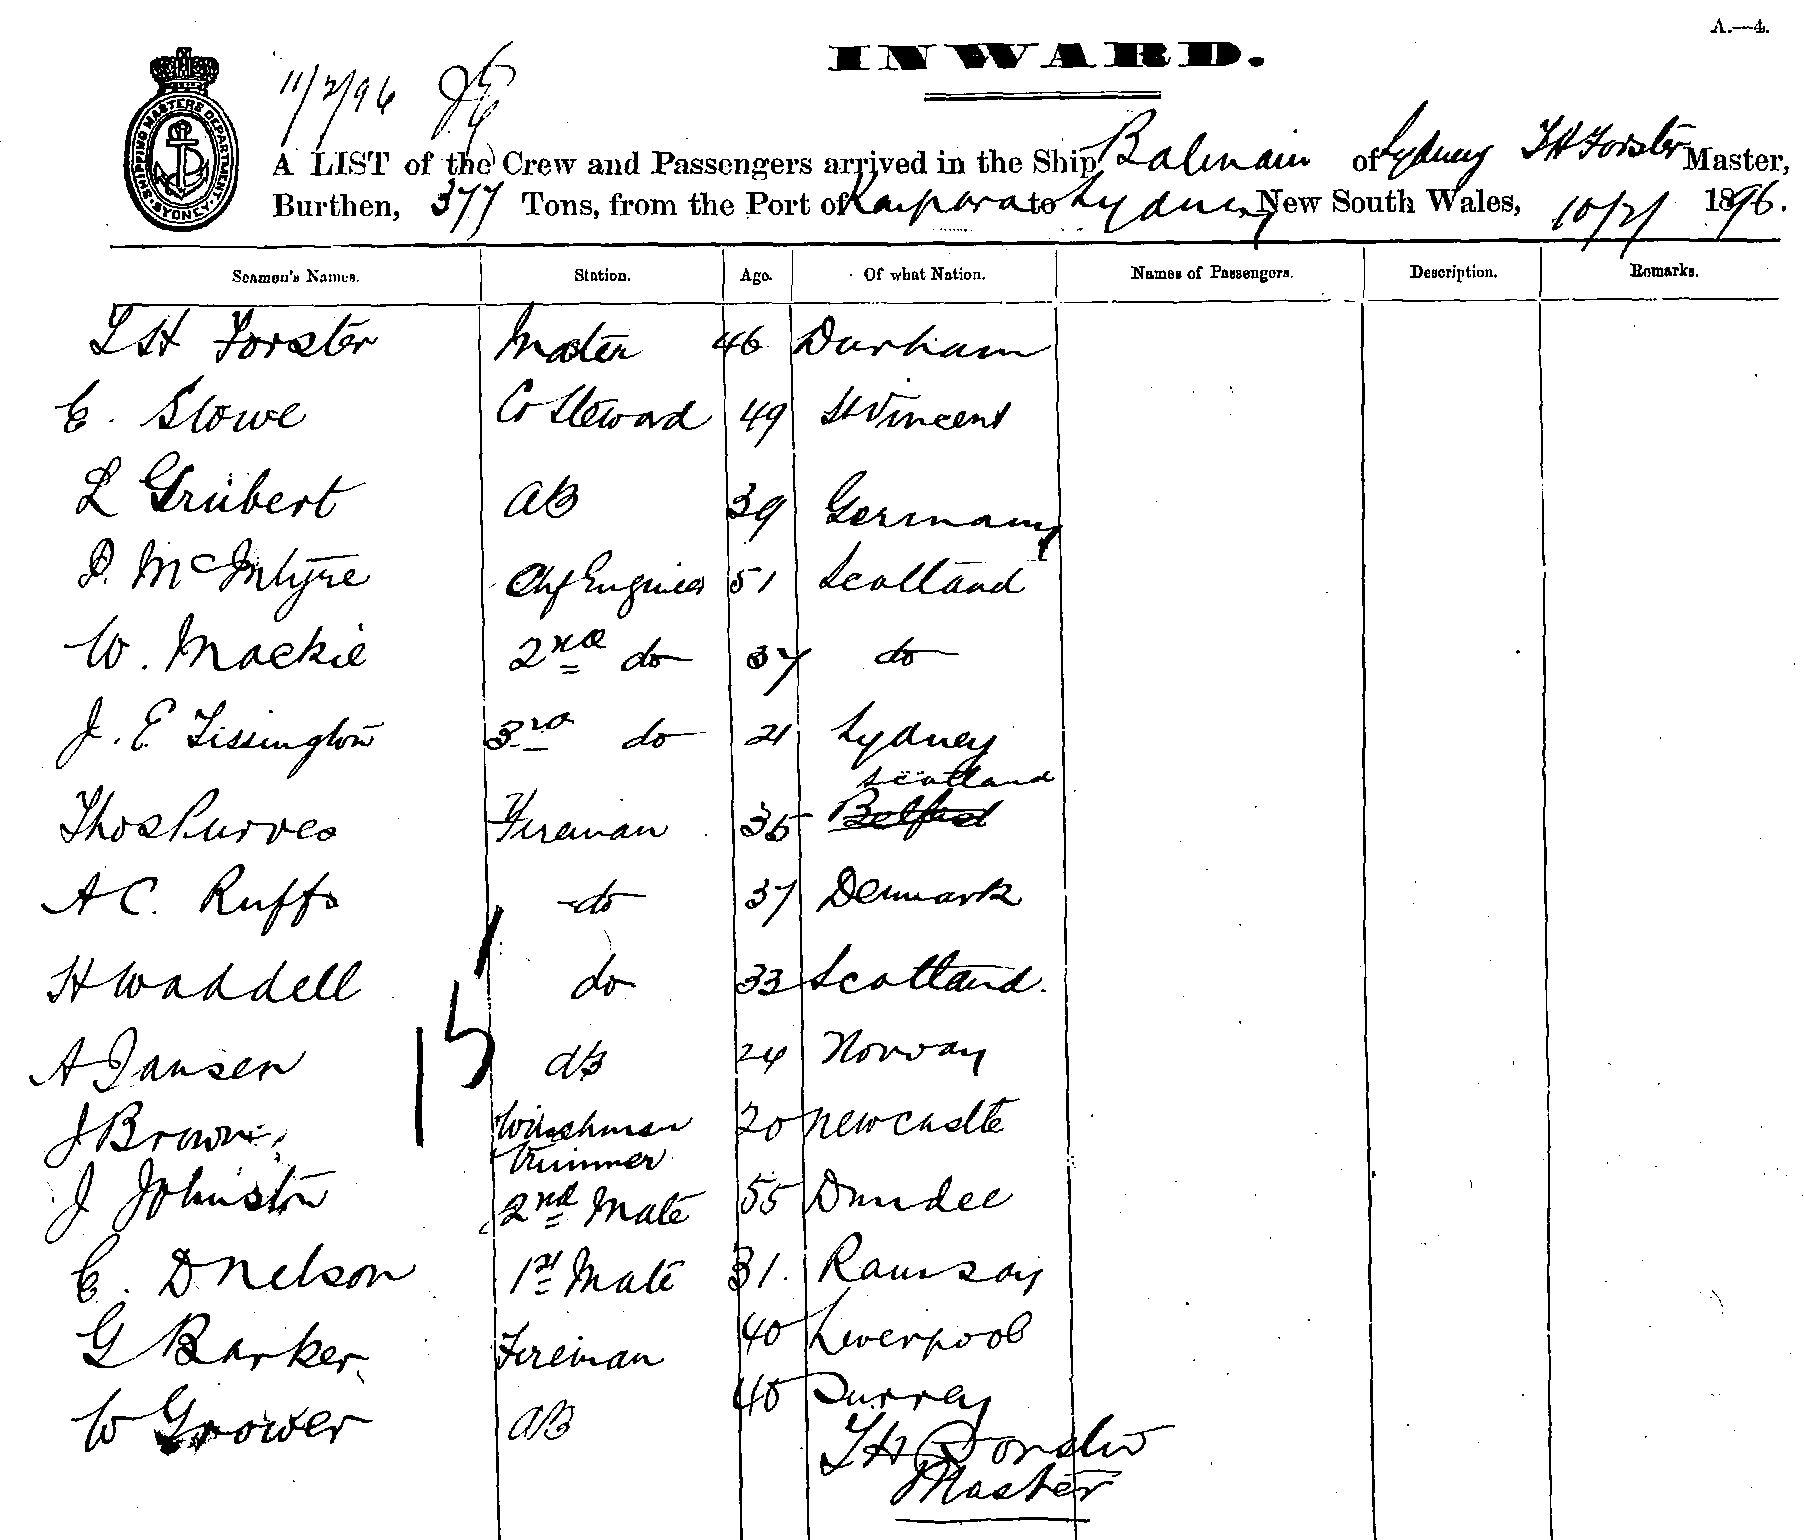 A.—4.
INWARD.
11/2/96
SHIPPING MASTERS DEPARTMENT SYDNEY
A LIST of the Crew and Passengers arrived in the Ship Balmain of Sydney T H Forster Master,
Burthen, 377 Tons, from the Port of Kaipara to Sydney New South Wales, 10/2/ 1896.
Seamen's Names. Station. Age. Of what Nation. Names of Passengers. Description. Remarks.
T H Forster Master 46 Durham
C. Stowe Steward 49 St Vincent
L Grübert AB 39 Germany
D. McIntyre Chf Engineer 51 Scotland
W. Mackie 2nd do 37 do
J. E Tissington 3rd do 21 Sydney
Scotland
Thos Purves Fireman 35 Belfast
A C. Ruffs do 37 Denmark
H Waddell do 33 Scotland.
15
A Jansen AB 24 Norway
J Brown Winchman 20 Newcastle
Trimmer
J Johnston 2nd Mate 55 Dundee
C. D Nelson 1st Mate 31. Ramsay
G Barker Fireman 40 Liverpool
W Grower AB 40 Surrey
T H Forster
Master